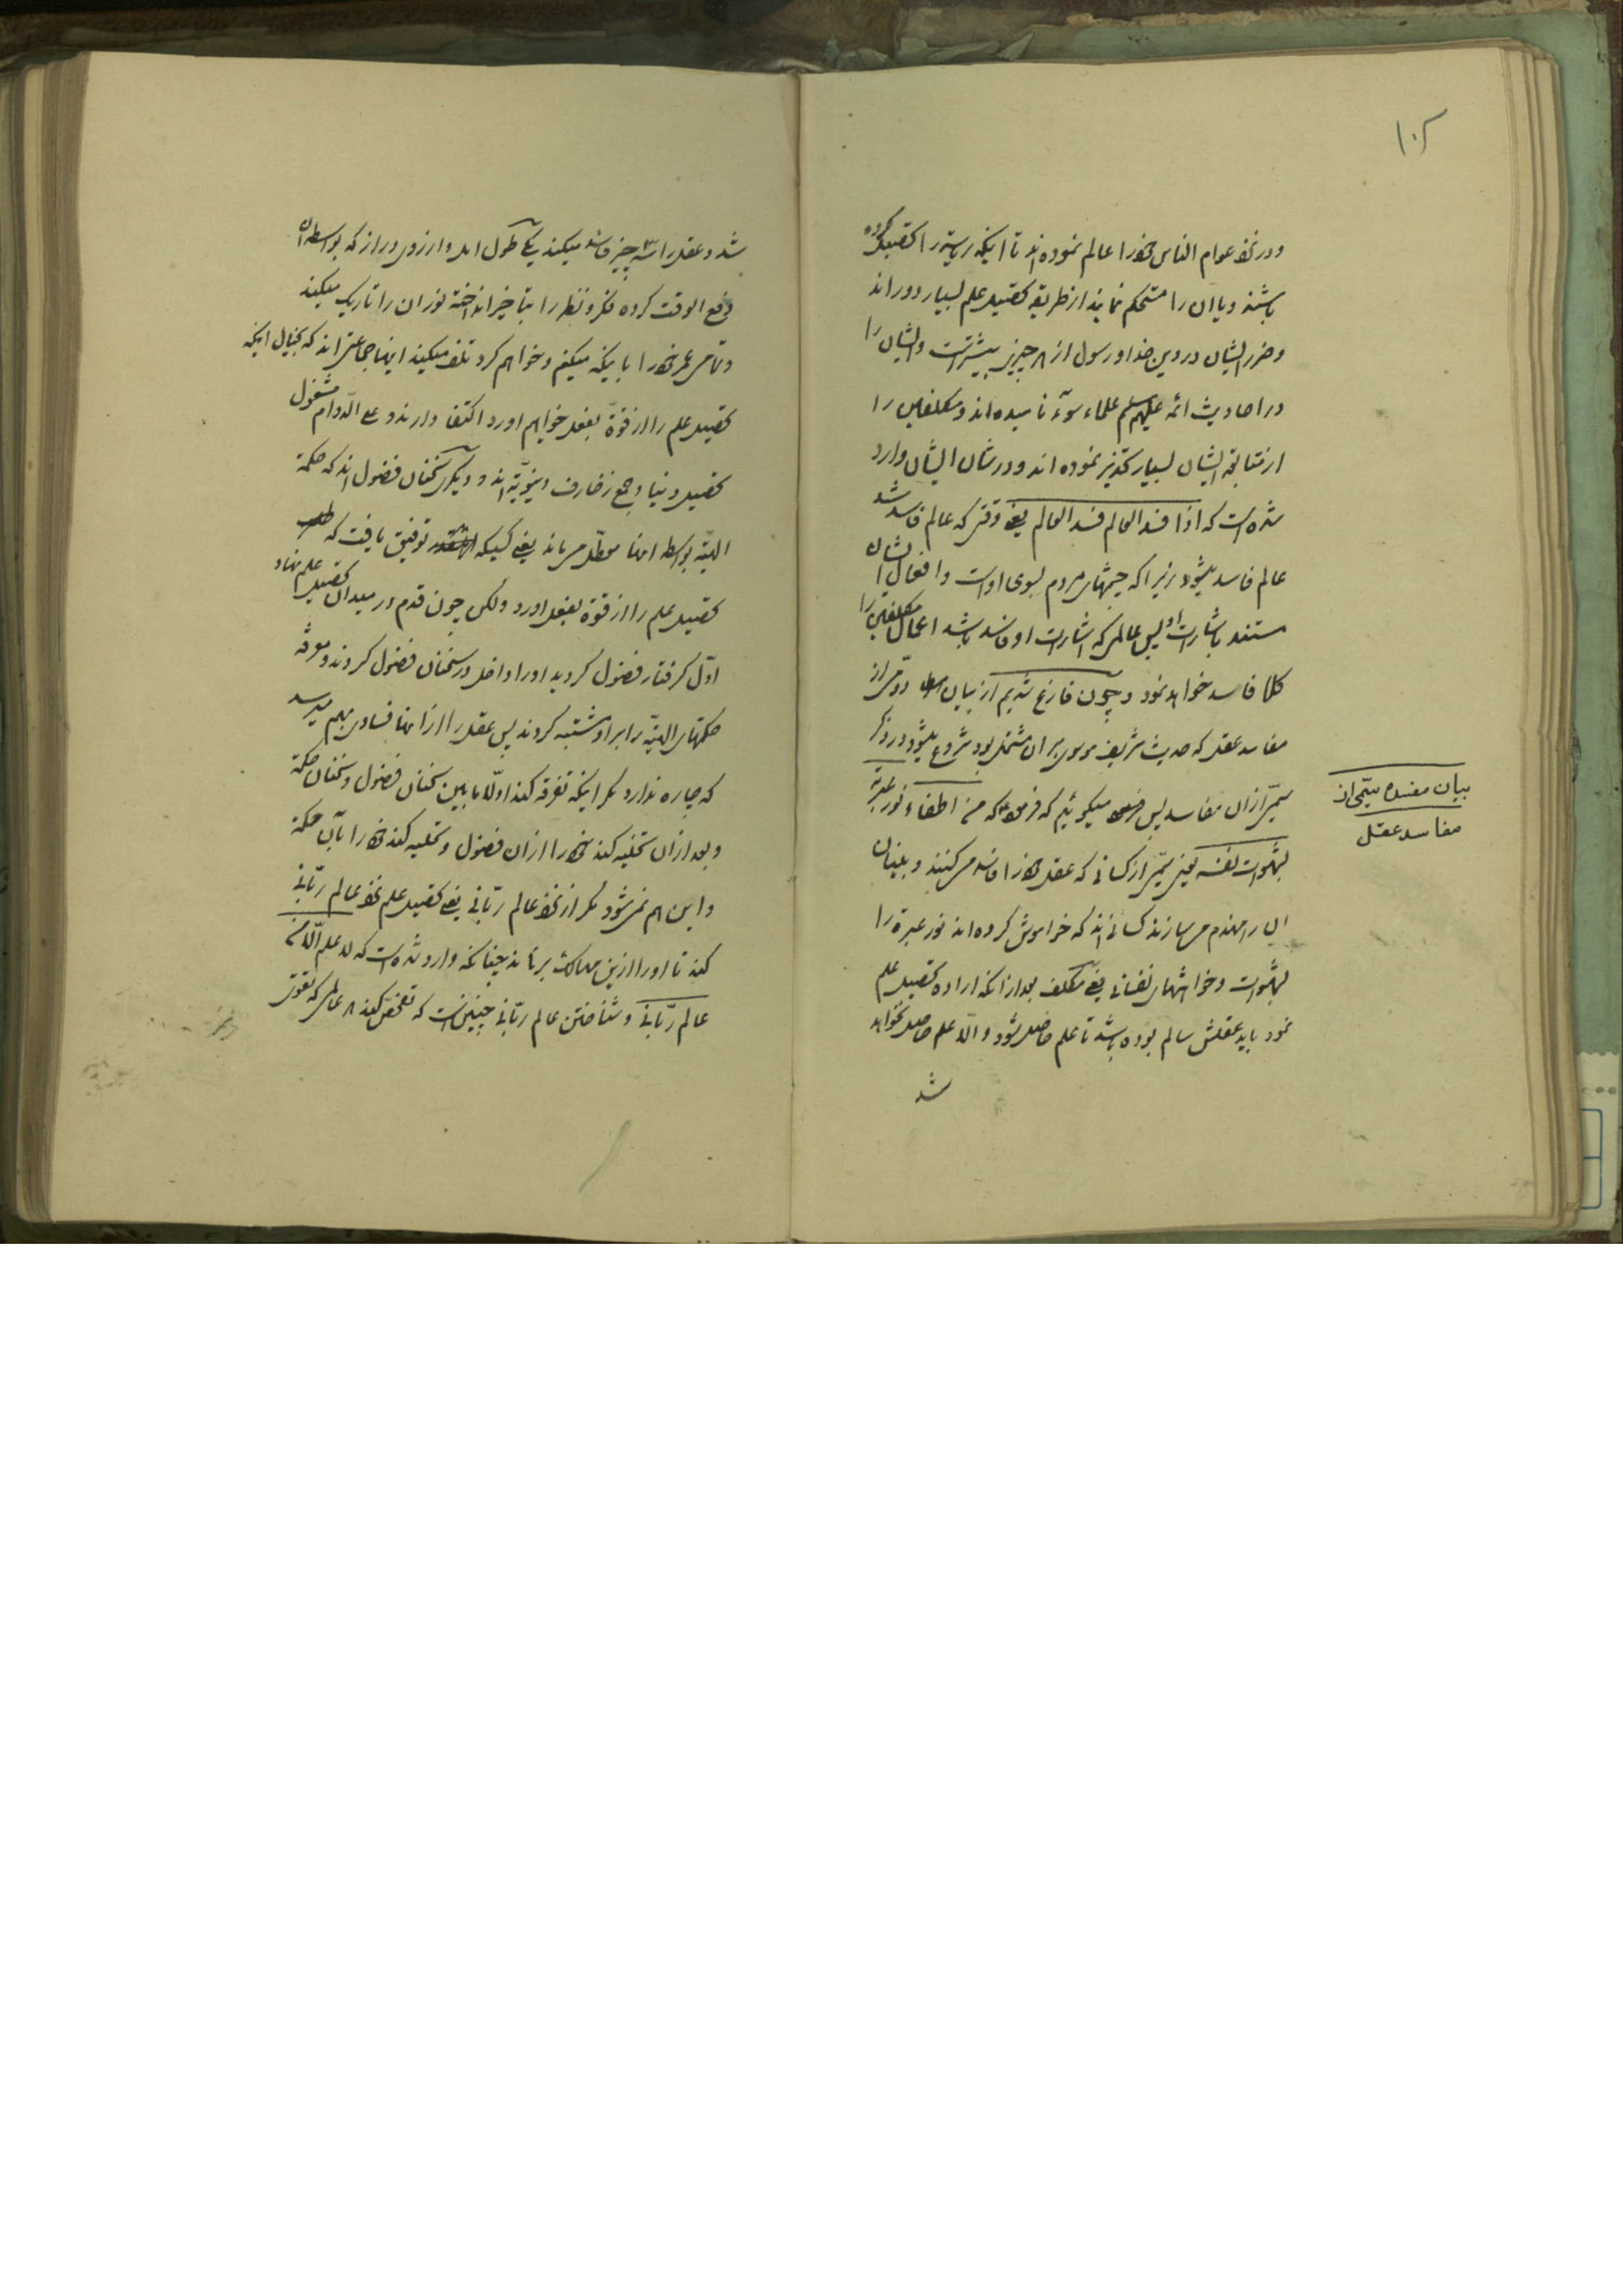 ۱۰۲
و در نظر عوام الناس خود را عالم نموده اند تا اینکه ریاستی را تحصیل کرده
باشند و یا ان را مستحکم نمایند از طریقه تحصیل علم بسیار دوراند
و ضرر ایشان در دین خدا و رسول از هر چیز بیشتراست و ایشان را
در احادیث ائمه علیهم سلم علماء سوٓء نامیده اند و مکلفین را
از متابعة ایشان بسیار تحذیر نموده اند و در شان ایشان وارد
شده است که اذا فسد العالم فسد العالم یعنی وقتی که عالم فاسد شد
عالم فاسد میشود زیرا که چشمهای مردم بسوی اوست و افعال ایشان
مستند باشارت او پس عالمی که اشارت او فاسد باشد اعمال مکلفین را
کلا فاسد خواهد نمود و چون فارغ شدیم از بیان دومی از
مفاسد عقل که حدیث شریف موسوی بر ان مشتمل بود شروع میشود در ذکر
سیمی از ان مفاسد پس میگوئیم که فرموده که من اطفاء نور عبرته
بشهوات نفسه یعنی سیمی از کسانی که عقل خود را فاسد می کنند و بنیان
ان را منهدم می سازند کسانی اند که خواموش کرده اند نور عبرة را
بشهوات و خواهشهای نفسانی یعنی مکلف بعد از انکه اراده تحصیل علم
نمود باید عقلش سالم بوده باشد تا علم حاصل شود و الّا علم حاصل نخواهد
شد
بیان مفسده سیمی از
مفاسد عقل
شد و عقل را سه چیز فاسد میکند یکی طول امل و ارزوی دراز که بواسطه ان
دفع الوقت کرده فکر و نظر را بتاخیر انداخته نور ان را تاریک میکند
و تمامی عمر خود را باینکه میکنم و خواهم کرد تلف میکند اینها جماعتی اند که بخیال اینکه
تحصیل علم را از قوّة بفعل خواهم اورد اکتفا دارند و علی الدّوام مشغول
تحصیل دنیا و جمع زخارف دنیویّه اند و دیگری سخنان فضول اند که حکمة
الهیّه بواسطه انها معطّل می ماند یعنی کسیکه توفیق یافت که طلب
تحصیل علم را از قوّة بفعل اورد ولکن چون قدم در میدان تحصیل علم نهاد
اوّل گرفتار فضول گردید او را داخل در سخنان فضول کردند و معرفة
حکمتهای الهیّه را بر او مشتبه کردند پس عقل را از انها فسادی بهم میرسد
که چاره ندارد مگر اینکه تفرقه کند اولّا مابین سخنان فضول و سخنان حکمة
و بعد از ان تخلیه کند خود را از ان فضول و تحلیه کند خود را بآن حکمة
و این هم نمی شود مگر از نزد عالم ربّانی یعنی تحصیل علم نزد عالم ربّانی
کند تا او را از این مهالک برهاند چنانکه وارد شده است که لا علم الّا من
عالم ربّانی و شناختن عالم ربّانی چنین است که تفحّص کند هر عالمی که تقوی